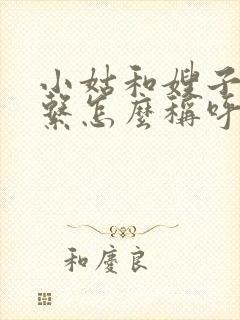 小姑和嫂子
繫怎麼稱呼
和慶良